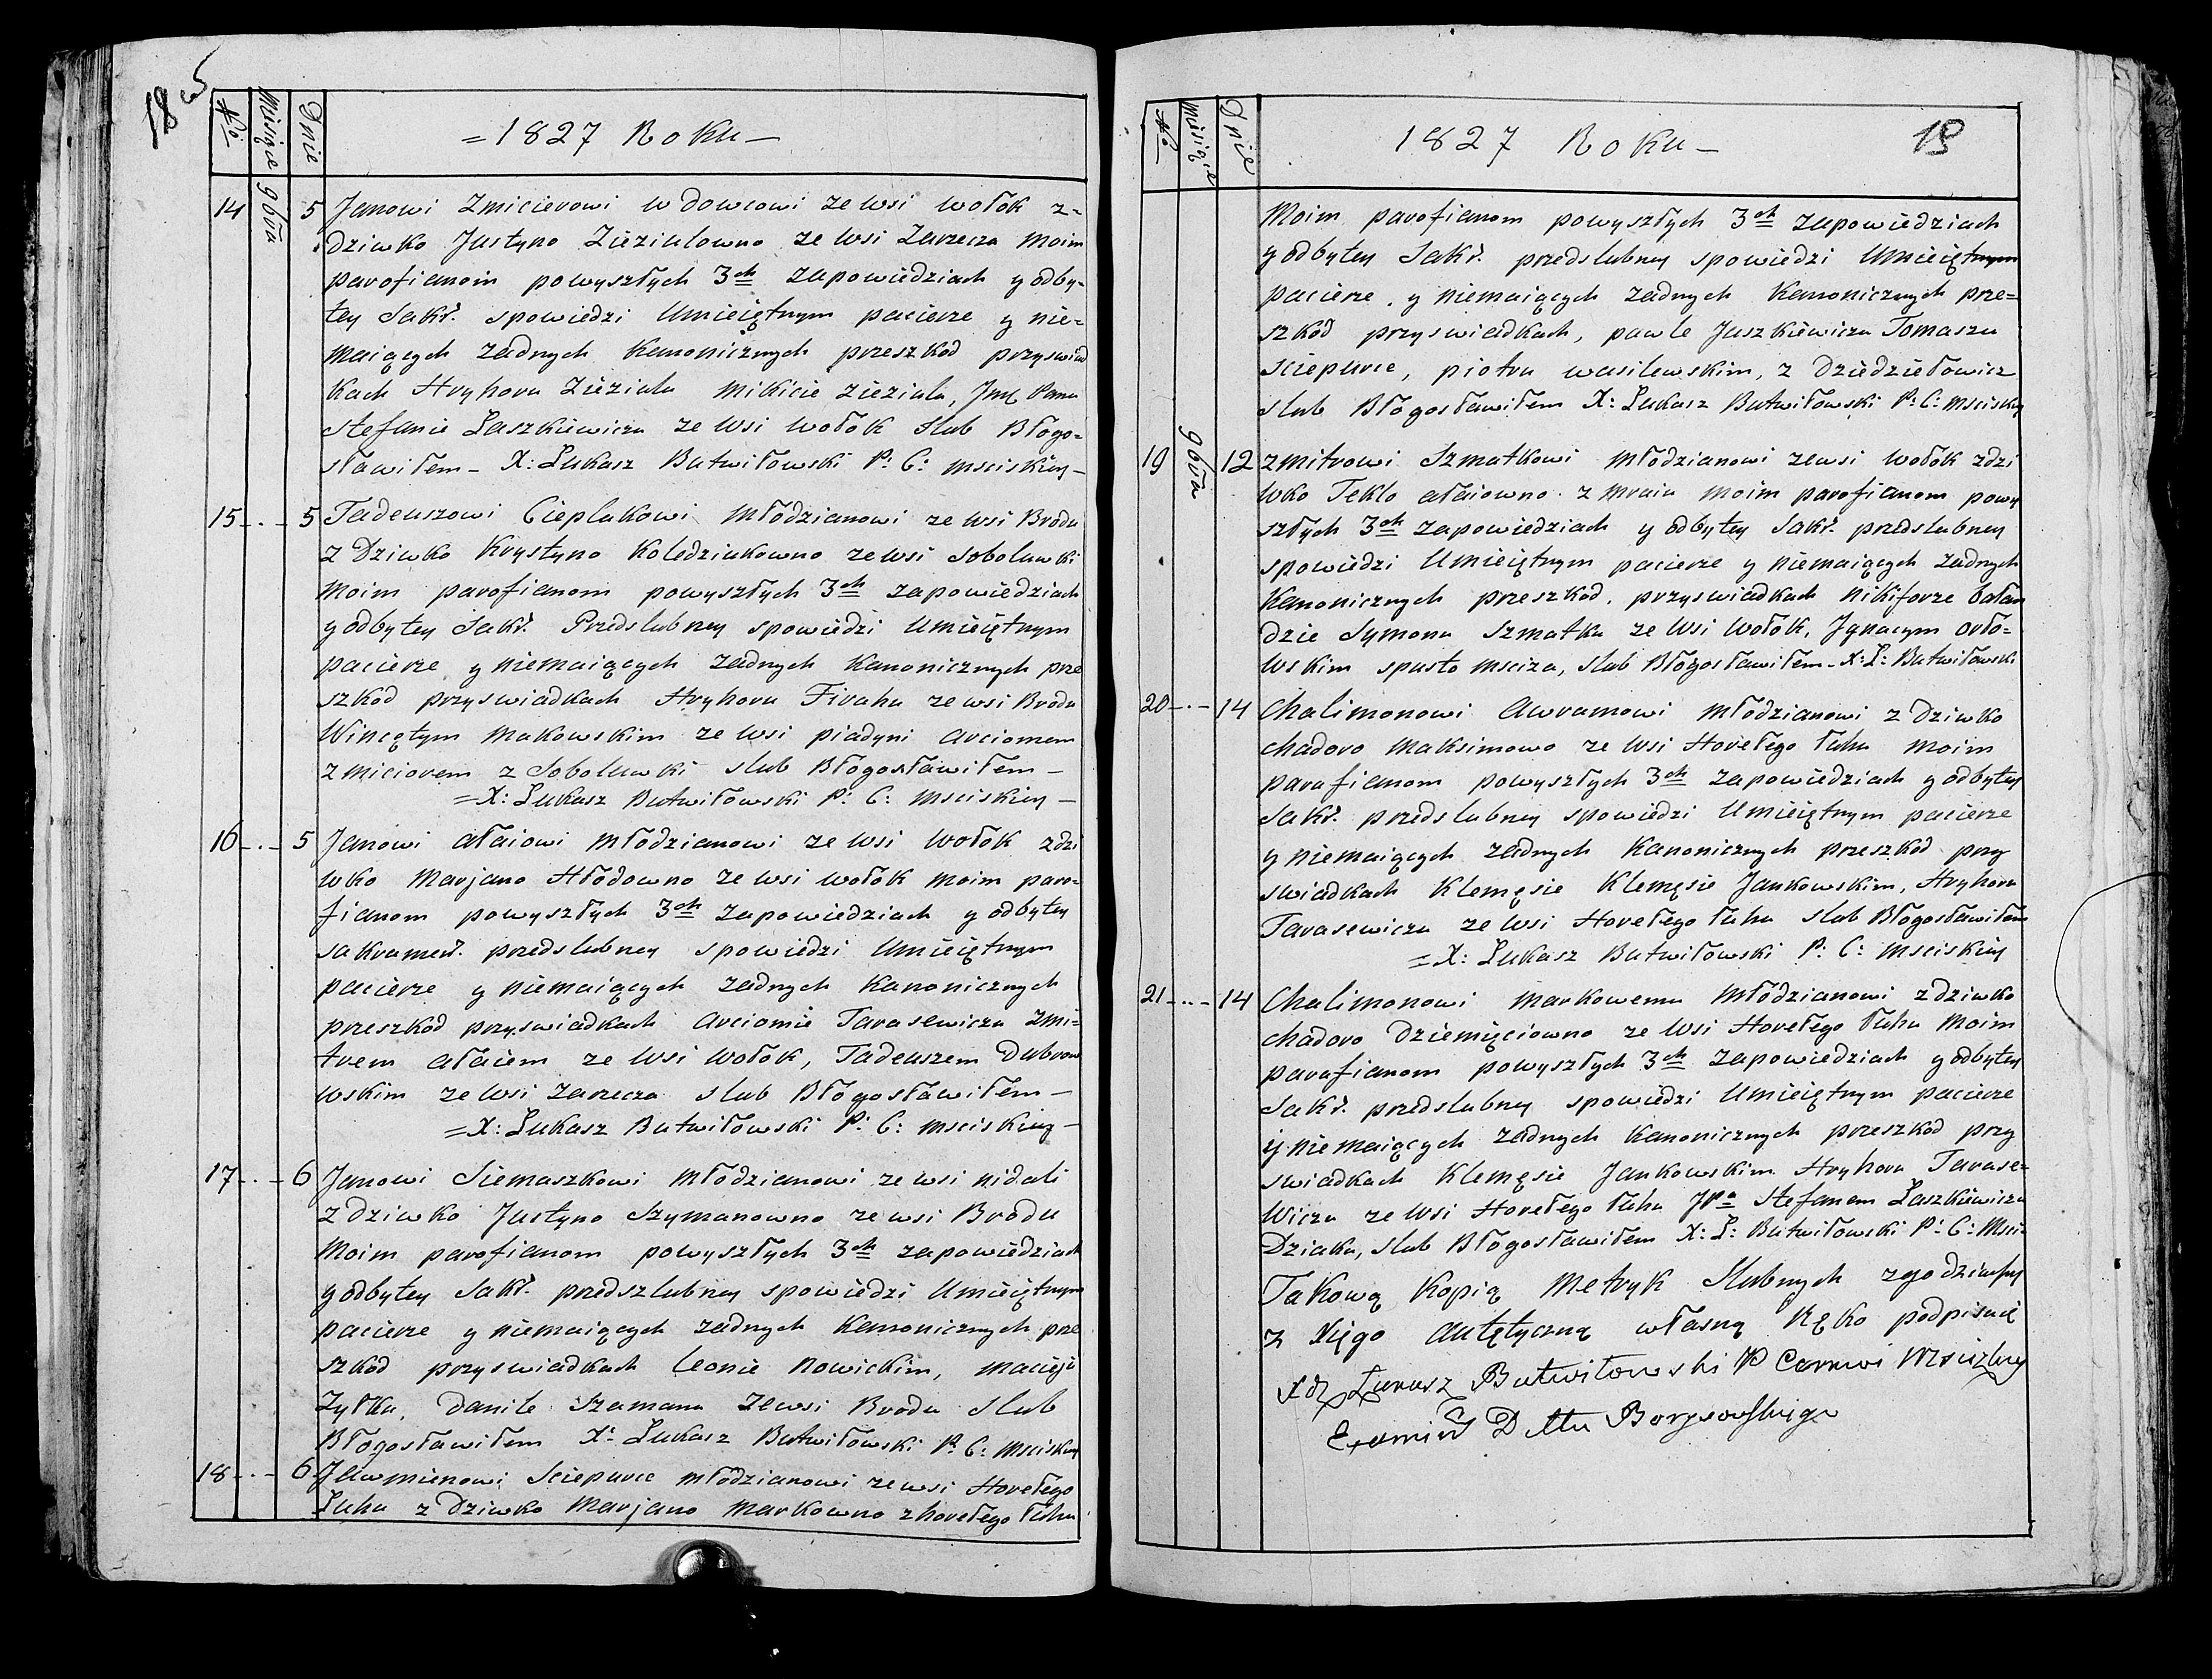 18
No Miesiąc Dnie = 1827 Roku –
14 9bra 5 Janowi Zmicierowi wdowcowi ze wsi wołok z-
dziwko Justyno Zieziulowno ze wsi Zarzecza moim
parofianom powyszłych 3ch zapowiedziach y odby-
tey Sakr. spowiedzi Umieiętnym pacierze y nie-
maiących zadnych kanonicznych przeszkod przyswiad
kach Hryhora Zieziula Mikicie Zieziula, Jmę Pana
Stefanie Laszkiewicza ze wsi wołok slub Błogo-
sławiłem – X: Łukasz Butwiłowski P: C: Msciskiey –
15 – . – 5 Tadeuszowi Cieplakowi młodzianowi ze wsi Brodu
z Dziwko Krystyno Kolodziukowno ze wsi Sobolewki
Moim parofianom powyszłych 3ch zapowiedziach
y odbytey Sakr. Przedslubney spowiedzi Umieiętnym
pacierze y niemaiących zadnych kanonicznych prze
szkod przyswiadkach Hryhora Firaha ze wsi Brodu
Wincętym Makowskim ze wsi piadyni Arciomem
Zmiciorem z Sobolewki slub Błogosławiłem –
= X: Łukasz Butwiłowski P: C: Msciskiey –
16 – . – 5 Janowi ałaiowi młodzianowi ze wsi wołok zdzi
wko Marjano Hłodowno ze wsi wołok moim paro-
fianom powyszłych 3ch zapowiedziach y odbytey
sakrament. przedslubney spowiedzi Umieiętnym
pacierze y niemaiących zadnych Kanonicznych
przeszkod przyswiadkach arciomie Tarasewicza Zmi-
trem ałaiem ze wsi wołok, Tadeuszem Dubrow
wskim ze wsi Zarzecza slub Błogosławiłem –
= X: Łukasz Butwiłowski P: C: Msciskiey –
17 – . – 6 Janowi Siemaszkowi młodzianowi ze wsi nidali
z dziwko Justyno Szymanowno ze wsi Brodu
Moim parofianom powyszłych 3ch zapowiedziach
y odbytey Sakr. przedszlubney spowiedzi Umieiętnym
pacierze y niemaiących zadnych Kanonicznych prze
szkod przyswiadkach Leonie Nowickim, Macieja
Zyłka, Danile Szamana Zewsi Brodu Slub
Błogosławiłem X: Łukasz Butwiłowski P: C: Msciskiey
18 – . – 6 Sciepurce młodzianowi ze wsi Horełego
Łuhu z Dziwko Marjano Markowno z horełego łuhu
No Miesiąc Dnie 1827 Roku – 19
Moim parofianom powyszłych 3ch zapowiedziach
y odbytey Sakr. przedslubney spowiedzi Umieiętnym
pacierze, y niemaiących zadnych Kanonicznych prze=
szkod przyswiadkach, pawle Juszkiewicza Tomasza
Sciepurce, piotra wasilewskim, z Dziedziełowicz
slub Błogosławiłem X: Łukasz Butwiłowski P: C: Msciskiey
19 9bra 12 Zmitrowi Szmatkowi młodzianowi ze wsi wołok zdzi
wko Teklo ałaiowno z mraia moim parofianom powy
szłych 3ch zapowiedziach y odbytey Sakr. przedslubney
spowiedzi Umieiętnym pacierze y niemaiących zadnych
Kanonicznych przeszkod, przyswiadkach nikiforze bałan
dzie Symona Szmatka ze wsi wołok, Ignacym orło-
wskim spusto msciza, slub Błogosławiłem – X: Ł: Butwiłowski
20 – . – 14 Chalimonowi Awramowi młodzianowi z Dziwko
chadoro Maksimowo ze wsi Horełego łuhu moim
parafianom powyszłych 3ch zapowiedziach y odbytey
Sakr. przedslubney spowiedzi Umieiętnym pacierze
y niemaiących zadnych Kanonicznych przeszkod przy
swiadkach Klemęsie Klemęsie Jankowskim, Hryhora
Tarasewicza ze wsi Horełego łuhu slub Błogosławiłem
= X: Łukasz Butwiłowski P: C: Msciskiey
21 – .. – 14 Chalimonowi Markowemu młodzianowi z dziwko
chadoro Dziemięciowno ze wsi Horełego łuhu Moim
parafianom powyszłych 3ch zapowiedziach y odbytey
Sakr. przedslubney spowiedzi Umieiętnym pacierze
y niemaiących zadnych kanonicznych przeszkod przy
swiadkach Klemęsie Jankowskim Hryhora Tarase-
wicza ze wsi Horełego łuhu Jpa Stefanem Laszkiewicza
Dziaka, slub Błogosławiłem X: Ł: Butwiłowski P: C: Msci-
Takową Kopią Metryk Slubnych zgodziwszy
z Xięgo Autętyczną własną Ręko podpisuię
Xdz Łukasz Butwiłowski P Cerkwi Mscizkiey
Borysowskiego